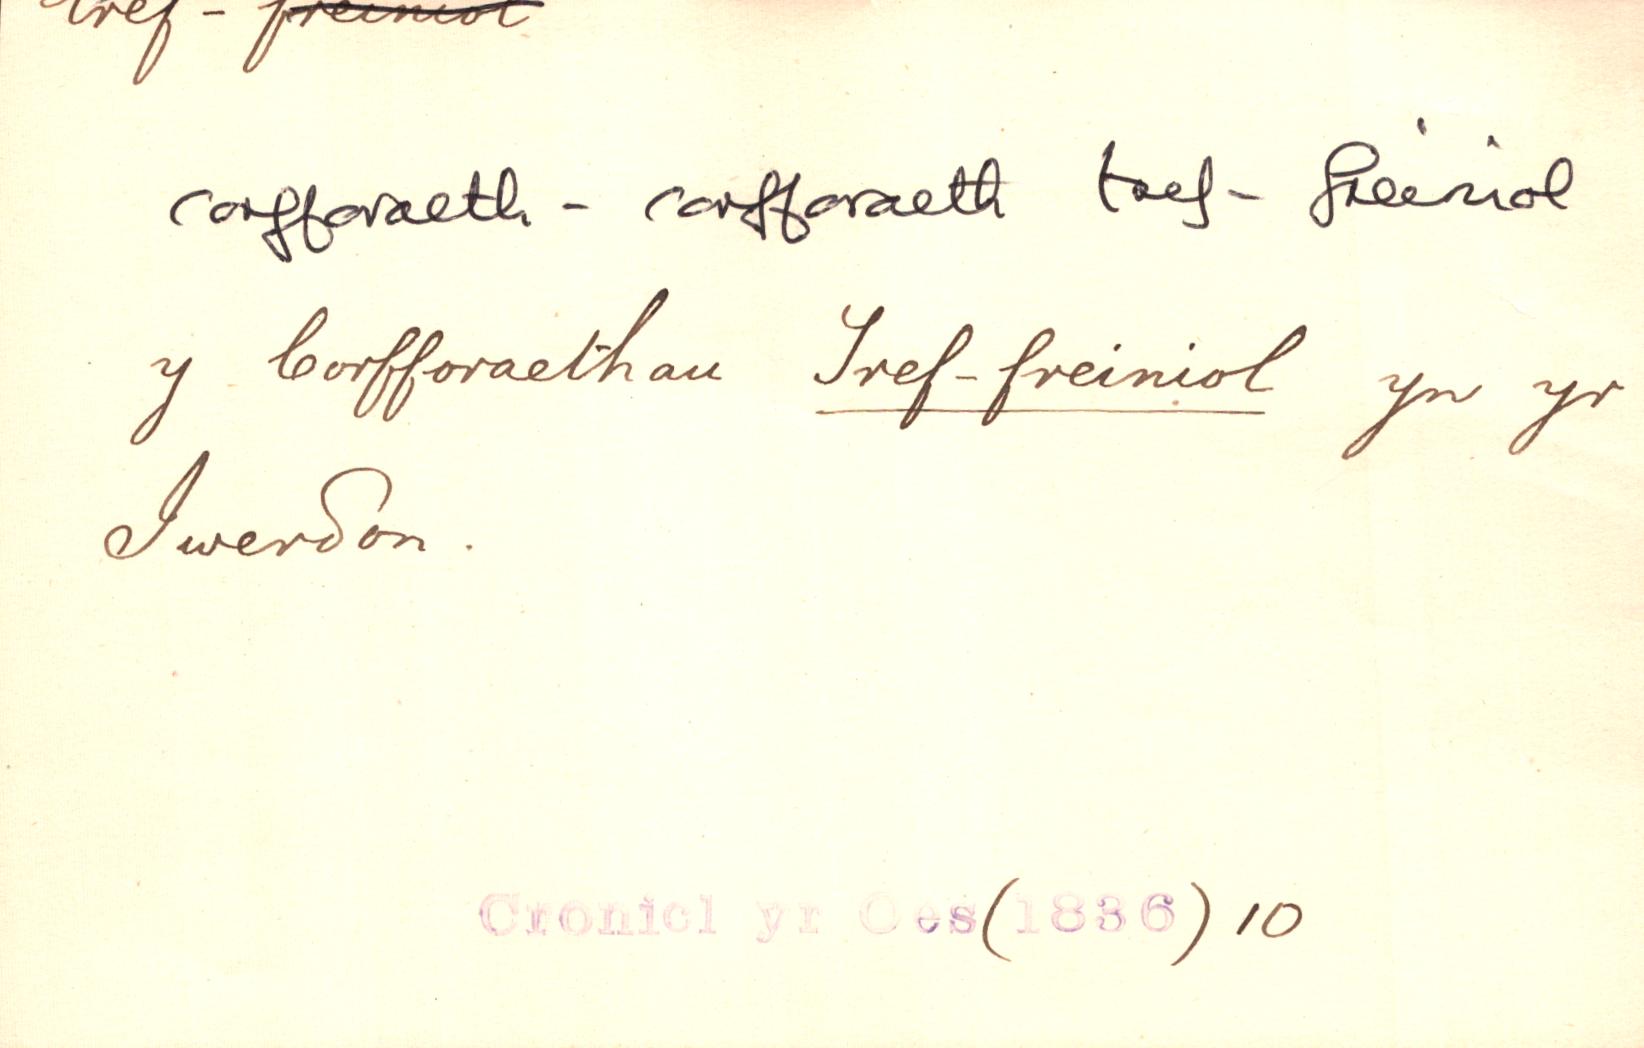 tref - freiniol
corfforaeth - corfforaeth tref - freiniol
y Corfforaethau Tref-freiniol yn yr
Iwerδon.
Cronicl yr Oes (1836) 10